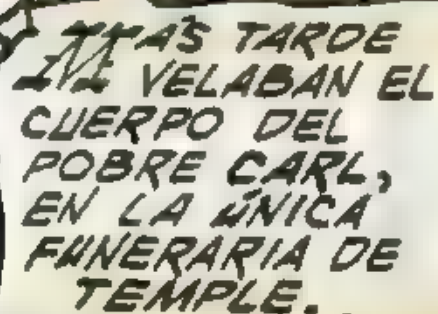 MÁS TARDE
VELABAN EL
CUERPO DEL
POBRE CARL,
EN LA ÚNICA
FUNERARIA DE
TEMPLE.